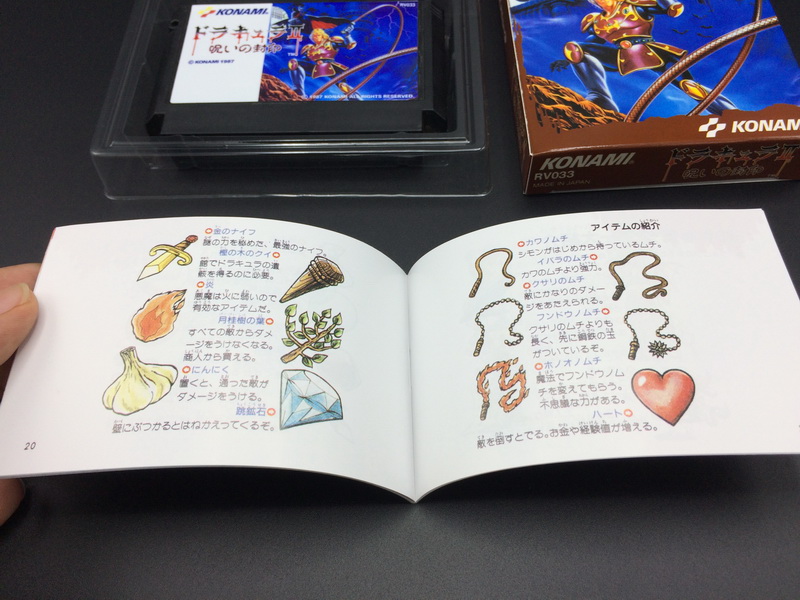 KONAMI
RV033
ドラキュラII
呪いの封印
© KONAMI 1987
© 1987 KONAMI ALL RIGHTS RESERVED.
KONAM
KONAMI
RV033
MADE IN JAPAN
ドラキュラII
呪いの封印
金のナイフ
謎の力を秘めた、最強のナイフ。
樫の木のクイ
館でドラキュラの遺
骸を得るのに必要。
炎
悪魔は火に弱いので
有効なアイテムだ。
月桂樹の葉
すべての敵からダメ
ージをうけなくなる。
商人から買える。
にんにく
置くと、通った敵が
ダメージをうける。
跳鉱石
壁にぶつかるとはねかえってくるぞ。
20
アイテムの紹介
カワノムチ
シモンがはじめから持っているムチ。
イバラのムチ
カワのムチより強力。
クサリのムチ
敵にかなりのダメー
ジをあたえられる。
フンドウノムチ
クサリのムチよりも
長く、先に鋼鉄の玉
がついているぞ。
ホノオノムチ
魔法でフンドウノム
チを変えてもらう。
不思議な力がある。
ハート
敵を倒すとでる。お金や経験値が増える。